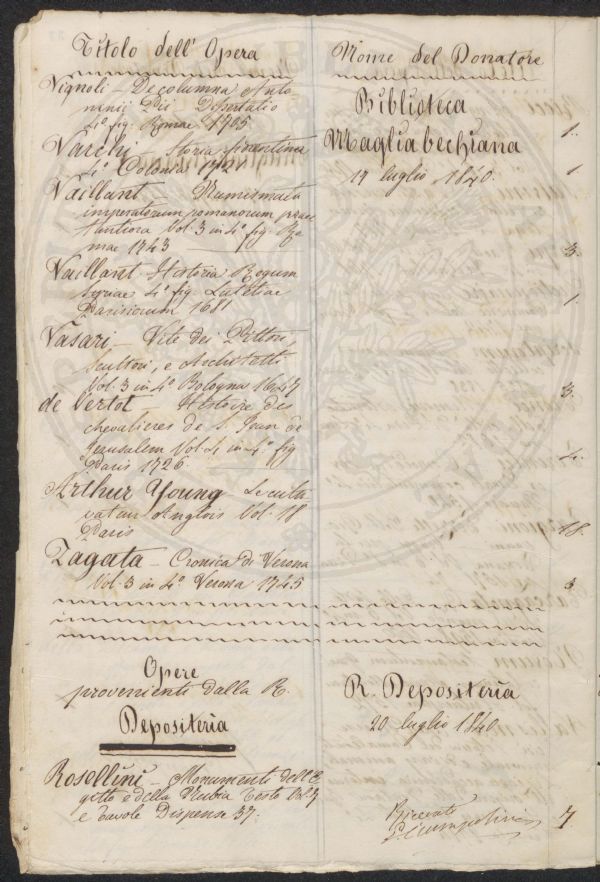 Titolo dell' Opera
Nome del Donatore
Vignoli – De columna Anto-
ninij Pii Dissertatio
4º fig. Romae 1705
Biblioteca
Magliabechiana
19 luglio 1840.
1.
Varchi – Storia fiorentina
4º Colonia 1721
1
Vaillant Numismata
imperatorum romanorum praes
tantiora Vol. 3 in 4º fig. Ro
mae 1743
3.
Vaillant. Historia Regum
Syriae 4º fig. Lutetiae
Parisiorum 1681
1.
Vasari – Vite dei Pittori,
Scultori, e Architetti
Vol. 3 in 4º Bologna 1647
3.
de Vertot Histoire des
chevalieres de S. Jean de
Jerusalem Vol 4 in 4º fig
Paris 1726
4.
Arthur Young Le culti
vateur Anglois Vol. 18
Paris
18.
Zagata – Cronica di Verona
Vol. 3 in 4º Verona 1745
3
Opere
provenienti dalla R.
Depositeria
R. Depositeria
20 luglio 1840
Rosellini – Monumenti dell' E
gitto e della Nubia Testo Vol. 7
e tavole Dispense 37.
Ricevuto
7